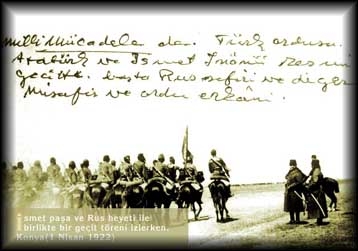 Milli Mücadele de. Türk ordusu.
Atatürk ve İsmet İnönü Resmi
Geçitte. başta Rus sefiri ve diğer
Misafir ve ordu erkânı.
İsmet paşa ve Rus heyeti ile
birlikte bir geçit töreni izlerken.
Konya(1 Nisan 1922)